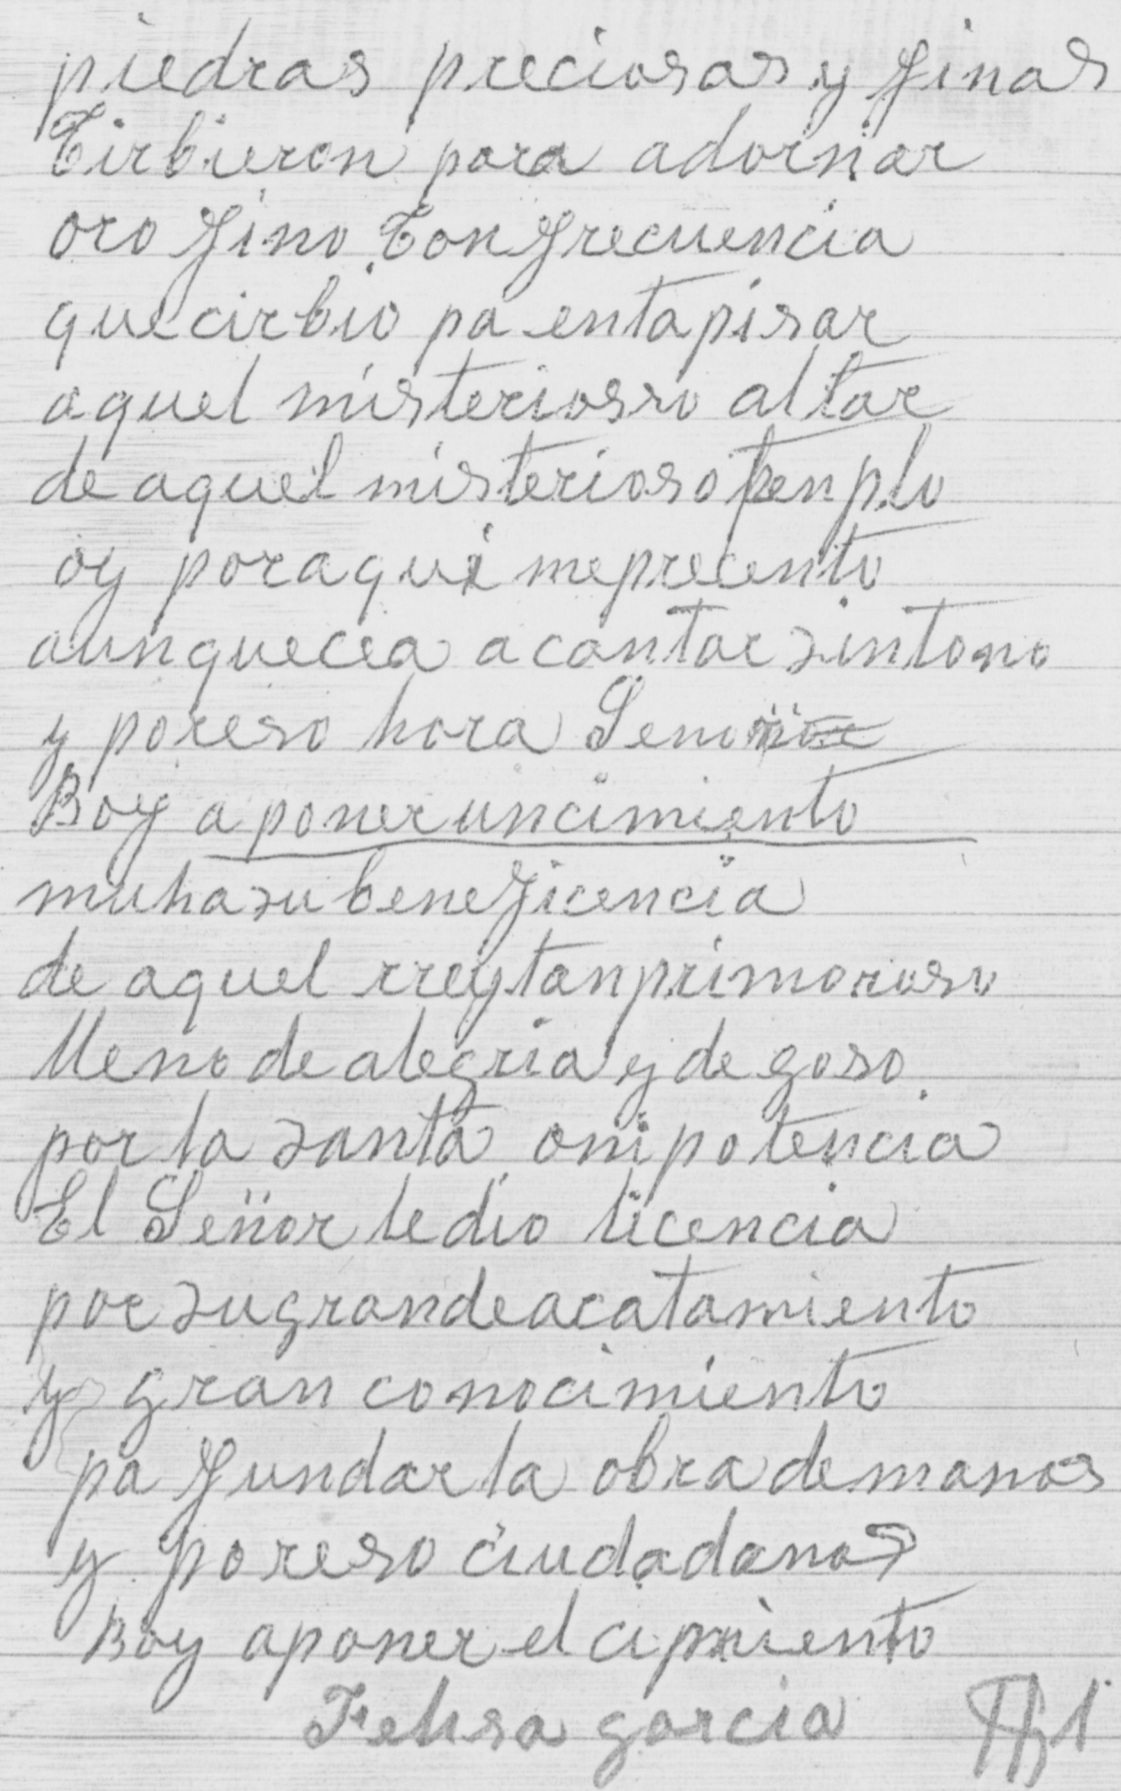 piedras preciosas y finas
Cirbieron para adornar
oro fino Con frecuencia
que cirbio pa entapisar
aquel misteriosso altar
de aquel misterioso tenplo
oy por aqui me precento
aunque cea a cantar sin tono
y por eso hora
Boy a poner un cimiento
muha su beneficencia
de aquel rrey tan primoroso
lleno de alegria y de goso
por la santa onipotencia
El Señor le dio licencia
por su grande acatamiento
y gran conocimiento
pa fundar la obra de manos
y por eso ciudadanos
Boy a poner el cimiento
Felisa garcia